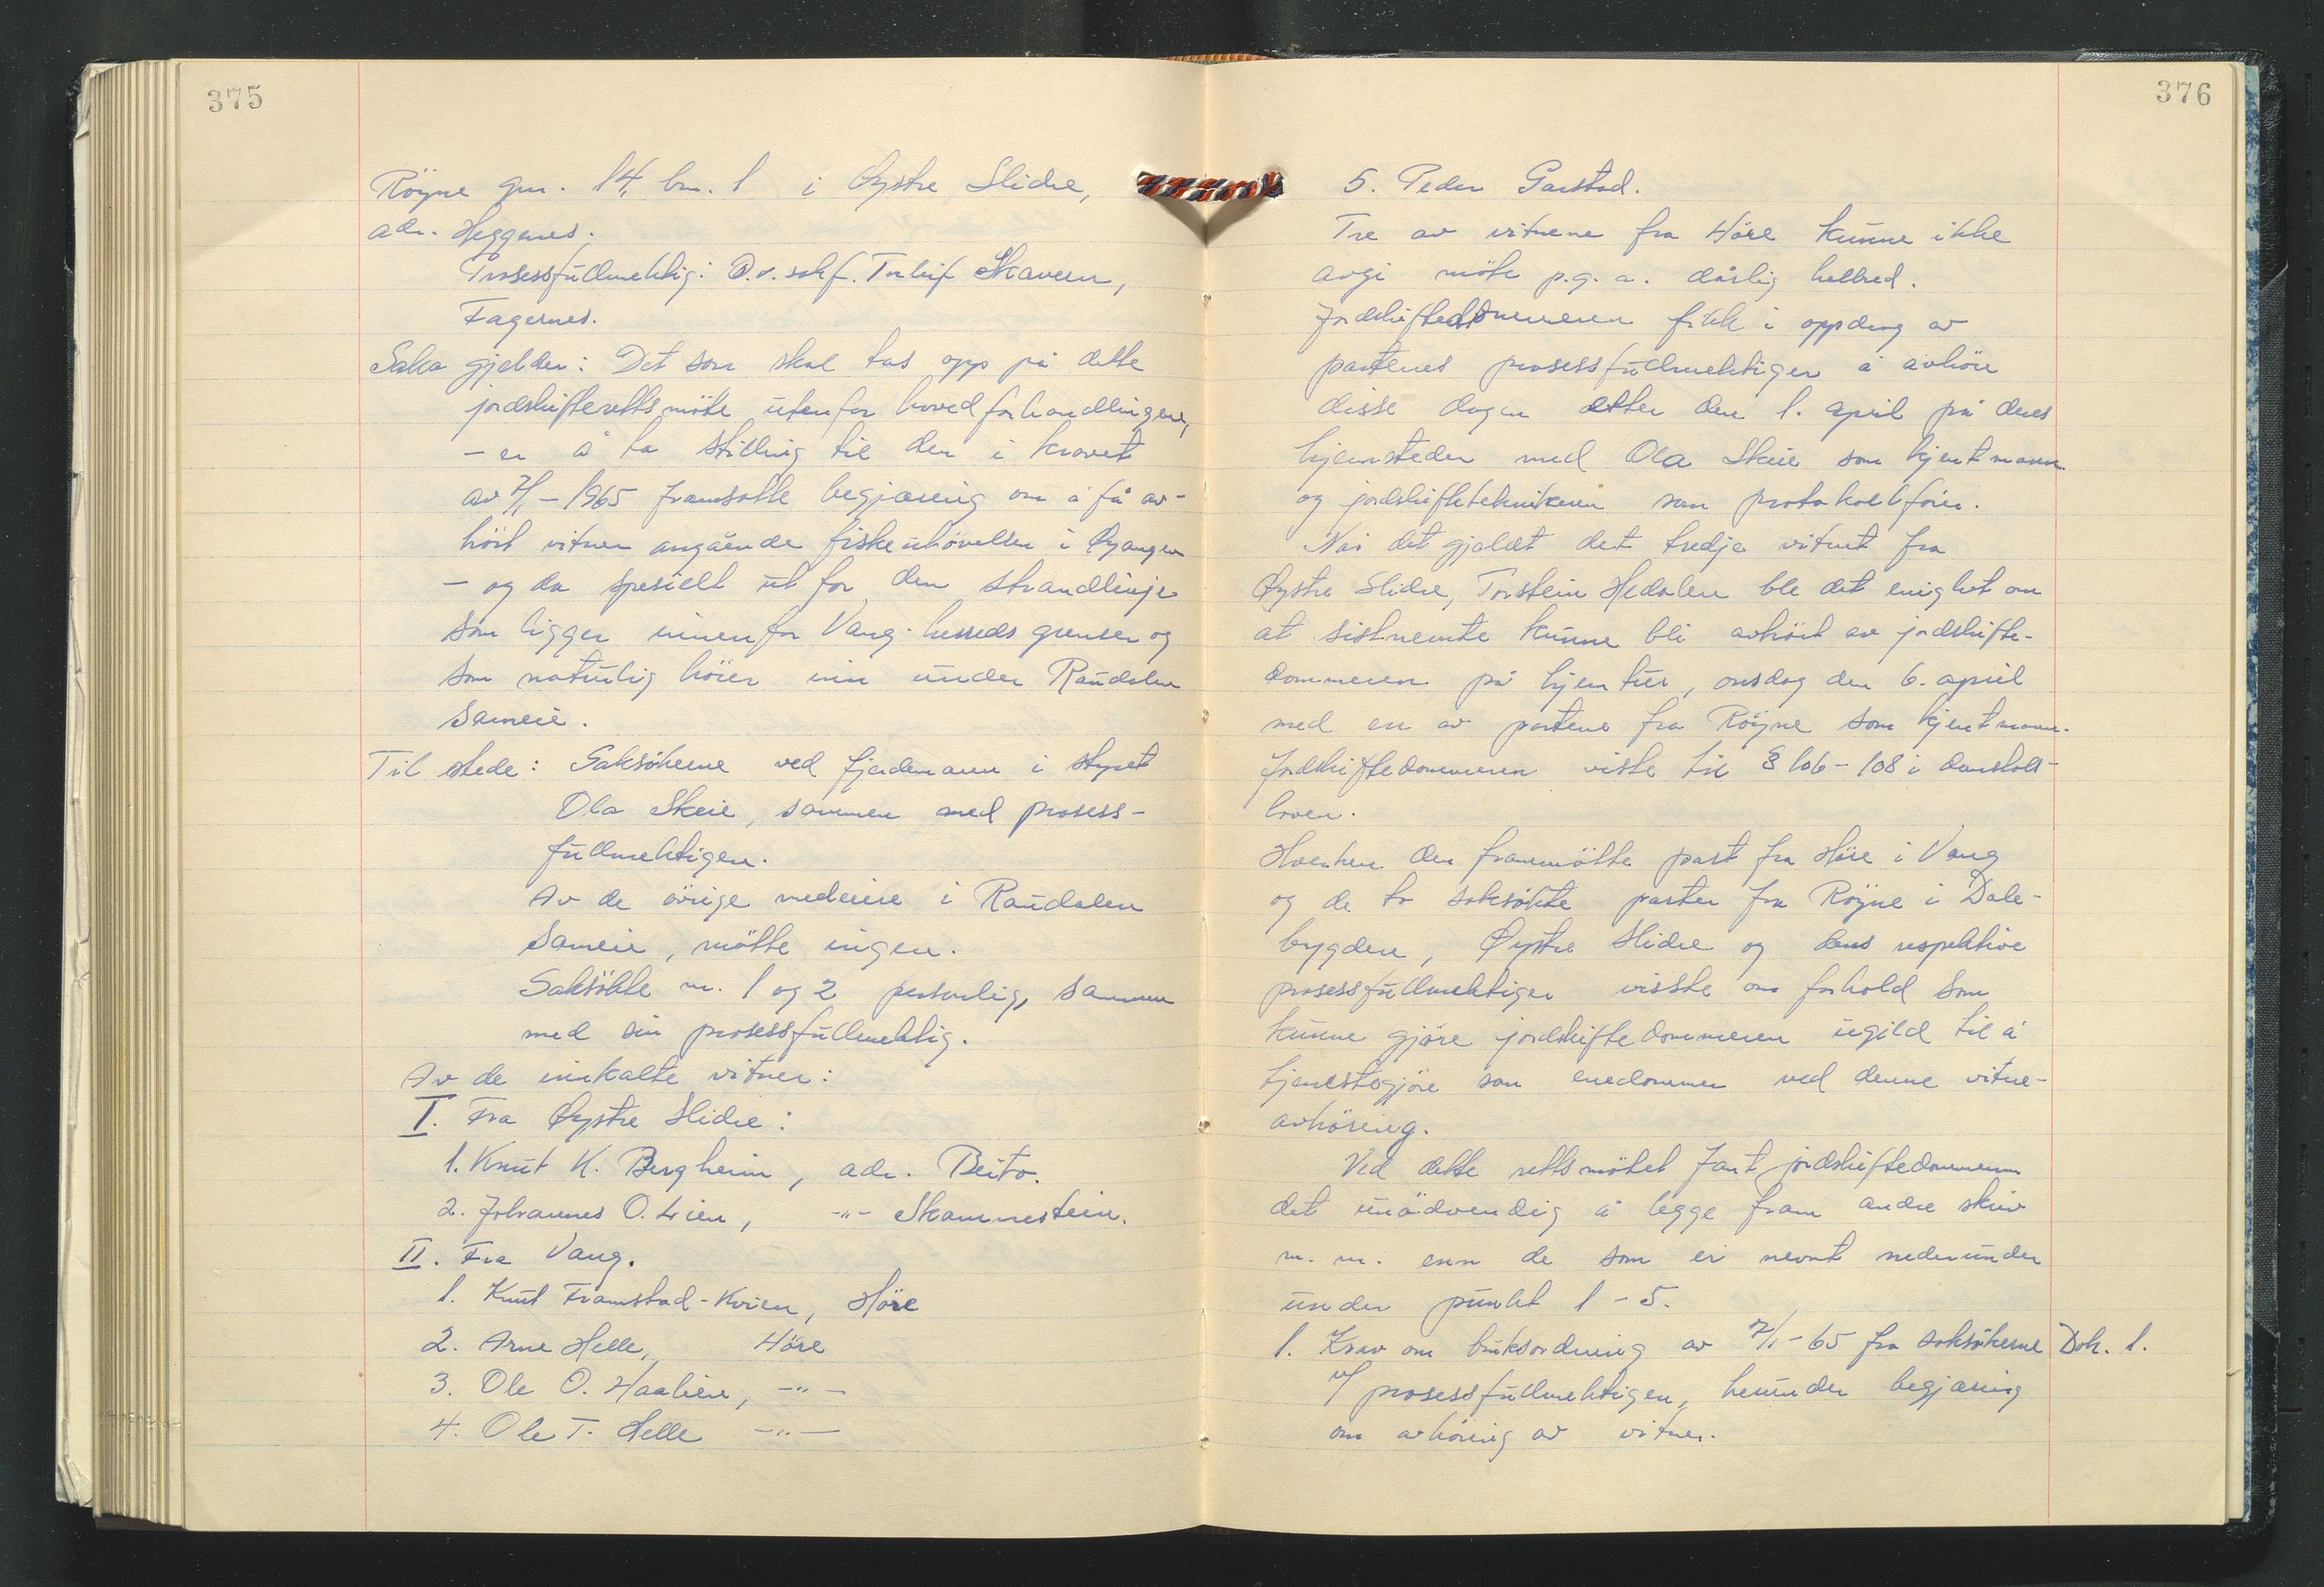 375
Röyne gnr. 14, bnr. 1 i Øystre Slidre,
adr. Heggenes.
Prosessfullmektig: O.r.sakf. Torleif Skaveen,
Fagernes.
Saka gjelder: Det som skal tas opp på dette
jordskifterettsmöte utenfor hovedforhandlingene,
– er å ta stilling til den i kravet
av 7/1 – 1965 framsatte begjæring om å få av-
hört vitner angående fiskeutövelsen i Øyangen
– og da spesielt ut for den strandlinje
som ligger innenfor Vang herreds grenser og
som naturlig hörer inn under Raudalen
Sameie.
Til stede: Saksökerne ved fjerdemann i styret
Ola Skeie, sammen med prosess-
fullmektigen.
Av de övrige medeiere i Raudalen
Sameie, mötte ingen.
Saksökte nr. 1 og 2 personlig, sammen
med sin prosessfullmektig.
Av de innkalte vitner:
I. Fra Øystre Slidre:
1. Knut K. Bergheim, adr. Beito.
2. Johannes O. Lien, -"- Skammestein.
II. Fra Vang.
1. Knut Framstad-Kvien, Höre
2. Arne Helle, Höre
3. Ole O. Haalien, -"-
4. Ole T. Helle -"-
376
5. Peder Garstad.
Tre av vitnene fra Höre kunne ikke
avgi möte p.g.a. dårlig helbred.
Jordskiftedommeren fikk i oppdrag av
partenes prosessfullmektiger å avhöre
disse dagen etter den 1. april på deres
hjemsteder med Ola Skeie som kjentmann
og jordskifteteknikeren som protokollförer.
Når det gjaldt det tredje vitnet fra
Øystre Slidre, Torstein Hedalen ble det enighet om
at sistnemte kunne bli avhört av jordskifte-
dommeren på hjemtur, onsdag den 6. april
med en av partene fra Röyne som kjentmann.
Jordskiftedommeren viste til § 106 – 108 i domstols-
loven.
Hverken den frammötte part fra Höre i Vang
og de to saksökte parter fra Röyne i Dale-
bygden, Øystre Slidre og deres respektive
prosessfullmektiger visste om forhold som
kunne gjöre jordskiftedommeren ugild til å
tjenestegjöre som enedommer ved denne vitne-
avhöring.
Ved dette rettsmötet fant jordskiftedommeren
det unödvendig å legge fram andre skriv
m. m. enn de som er nevnt nedenunder
under punkt 1 – 5.
1. Krav om bruksordning av 7/1 – 65 fra saksökerne Dok. 1.
v/ prosessfullmektigen, herunder begjæring
om avhöring av vitner.